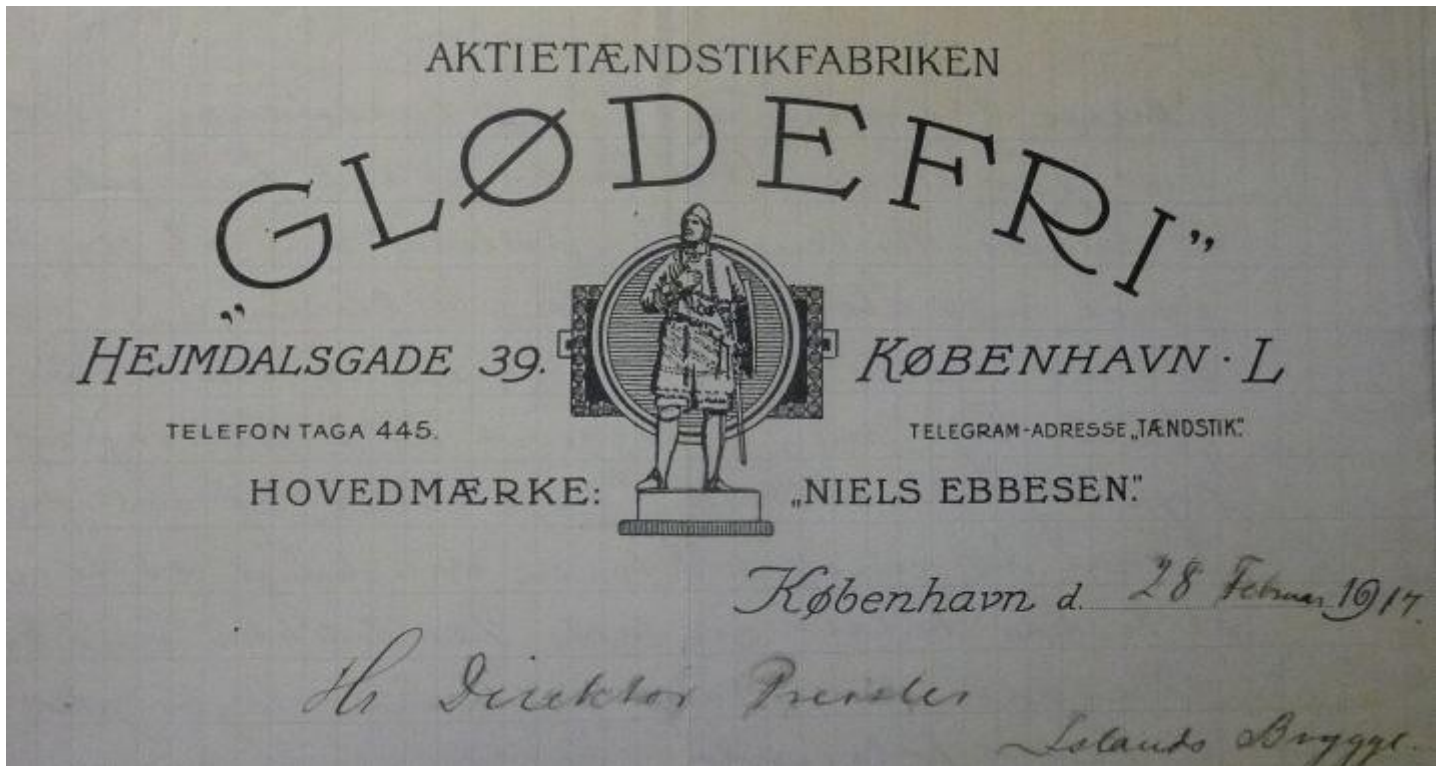 AKTIETÆNDSTIKFABRIKEN
„GLØDEFRI”
HEJMDALSGADE 39. KØBENHAVN · L
TELEFON TAGA 445. TELEGRAM-ADRESSE „TÆNDSTIK”.
HOVEDMÆRKE: „NIELS EBBESEN”.
København d. 28 Februar 1917.
Hr Direktør
Islands Brygge.